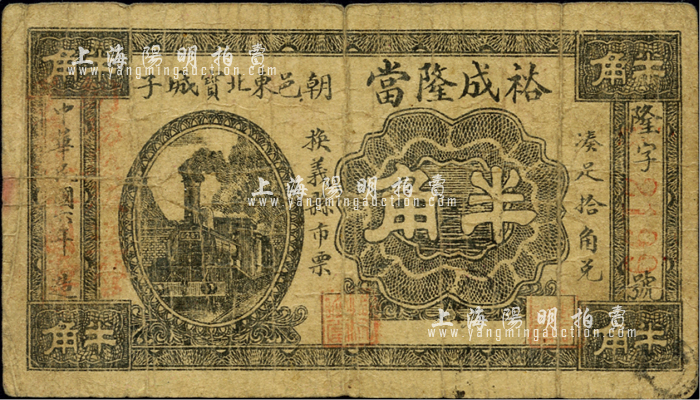 裕成隆當
朝邑東北賓城子
半角
半角
半角
半角
半角
隆字
號
湊足拾角兑
換義縣市票
中華民國六年造
上海陽明拍賣
www.yangmingauction.com
上海陽明拍賣
www.yangmingauction.com
上海陽明拍賣
www.yangmingauction.com